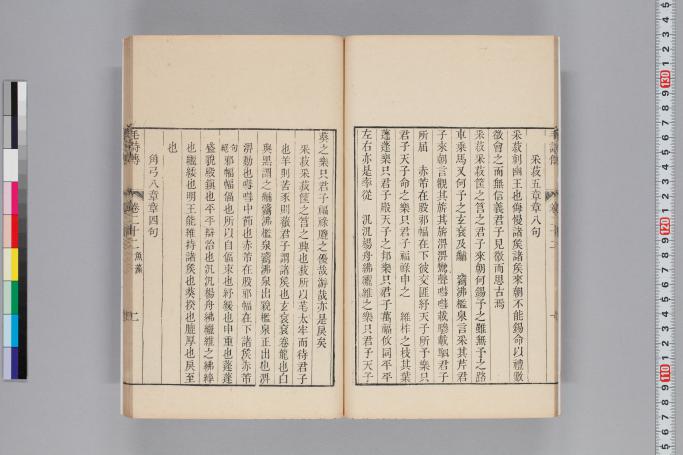 采菽五章章八句
采菽刺幽王也侮慢諸矦諸矦來朝不能錫命以禮數
徵會之而無信義君子見微而思古焉
采菽采菽筐之筥之君子來朝何錫予之雖無予之路
車乘馬又何予之玄衮及黼 觱沸檻泉言采其芹君
子來朝言觀其旂其旂淠淠鸞聲嘒嘒載驂載駟君子
所屆 赤芾在股邪幅在下彼交匪紓天子所予樂只
君子天子命之樂只君子福祿申之 維柞之枝其葉
蓬蓬樂只君子殿天子之邦樂只君子萬福攸同平平
左右亦是率從 汎汎楊舟紼纚維之樂只君子天子
葵之樂只君子福祿膍之優哉游哉亦是戾矣
采菽采菽筐之筥之興也菽所以芼太牢而待君子
也羊則苦豕則薇君子謂諸矦也玄衮衮卷龍也白
與黑謂之黼觱沸泉出貌檻泉正出也淠
淠動也嘒嘒中節也赤芾在股邪幅在下諸矦赤芾
邪幅幅偪也所以自偪束也紓緩也申重也蓬蓬
盛貌殿鎮也平平辯治也汎汎楊舟紼纚維之紼繂
也纚緌也明王能維持諸矦也葵揆也膍厚也戾至
也
角弓八章章四句
毛詩傳
卷二十二
魚藻